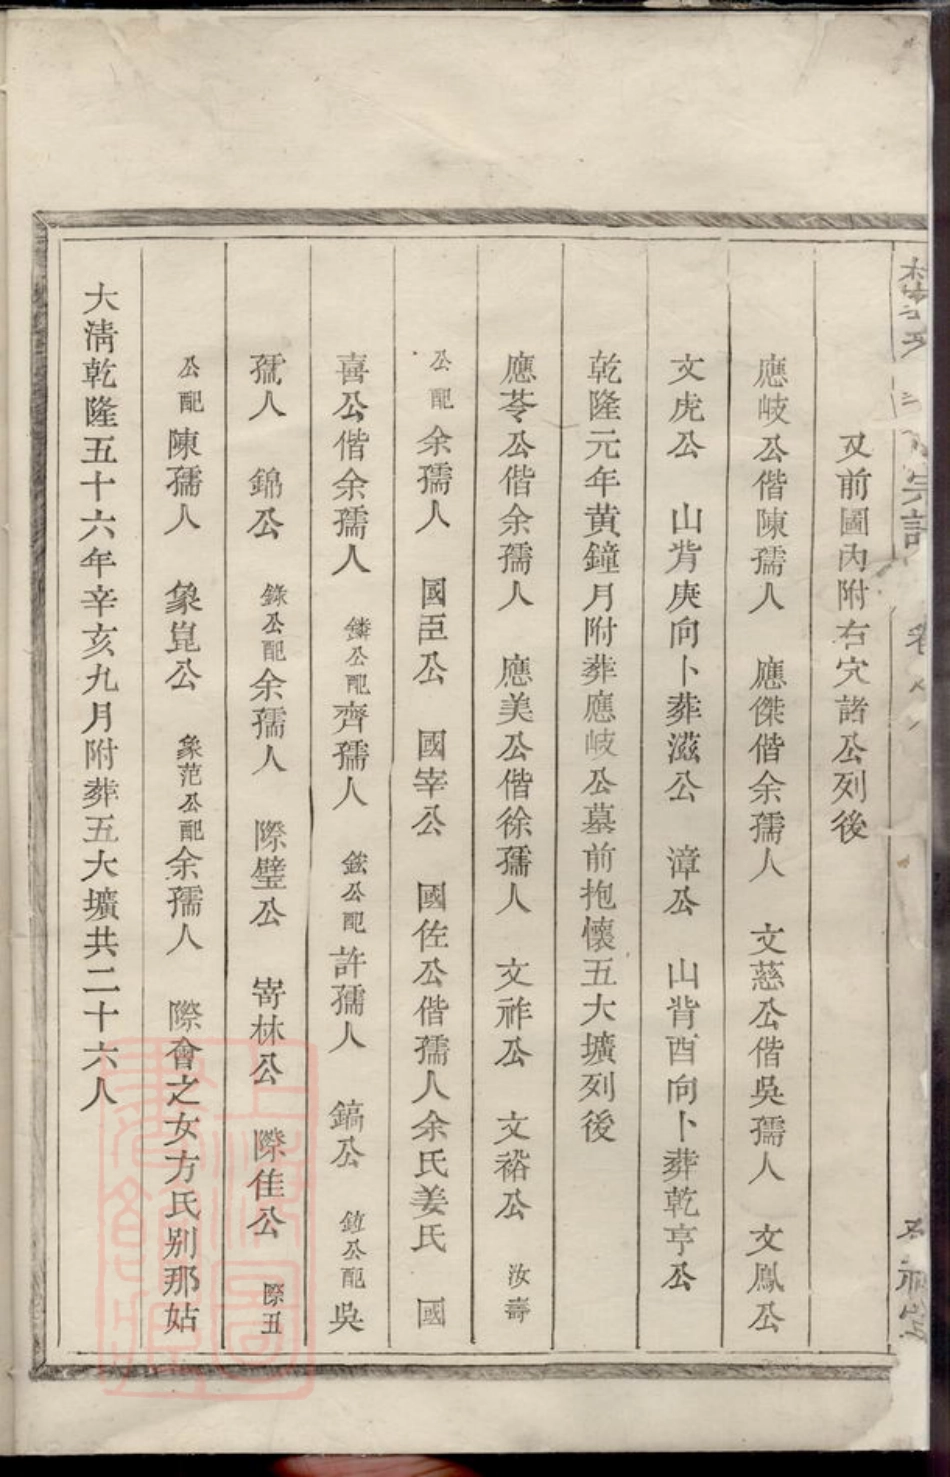 又前圖內附右穴諸公列後
應岐公偕陳孺人 應傑偕余孺人 文慈公偕吳孺人 文鳳公
文虎公 山背庚向卜葬滋公 漳公 山背酉向卜葬乾亨公
乾隆元年黃鐘月附葬應岐公墓前抱懷五大壙列後
應苓公偕余孺人 應美公偕徐孺人 文祚公 文裕公 汝壽
公配余孺人 國臣公 國宰公 國佐公偕孺人余氏姜氏 國
喜公偕余孺人 鏻公配齊孺人 鉉公配許孺人 鎬公 公配吳
孺人 錦公 錄公配余孺人 際璧公 崙林公 際佳公 際丑
公配陳孺人 象崑公 象范公配余孺人 際會之女方氏别那姑
大清乾隆五十六年辛亥九月附葬五大壙共二十六人
宗譜